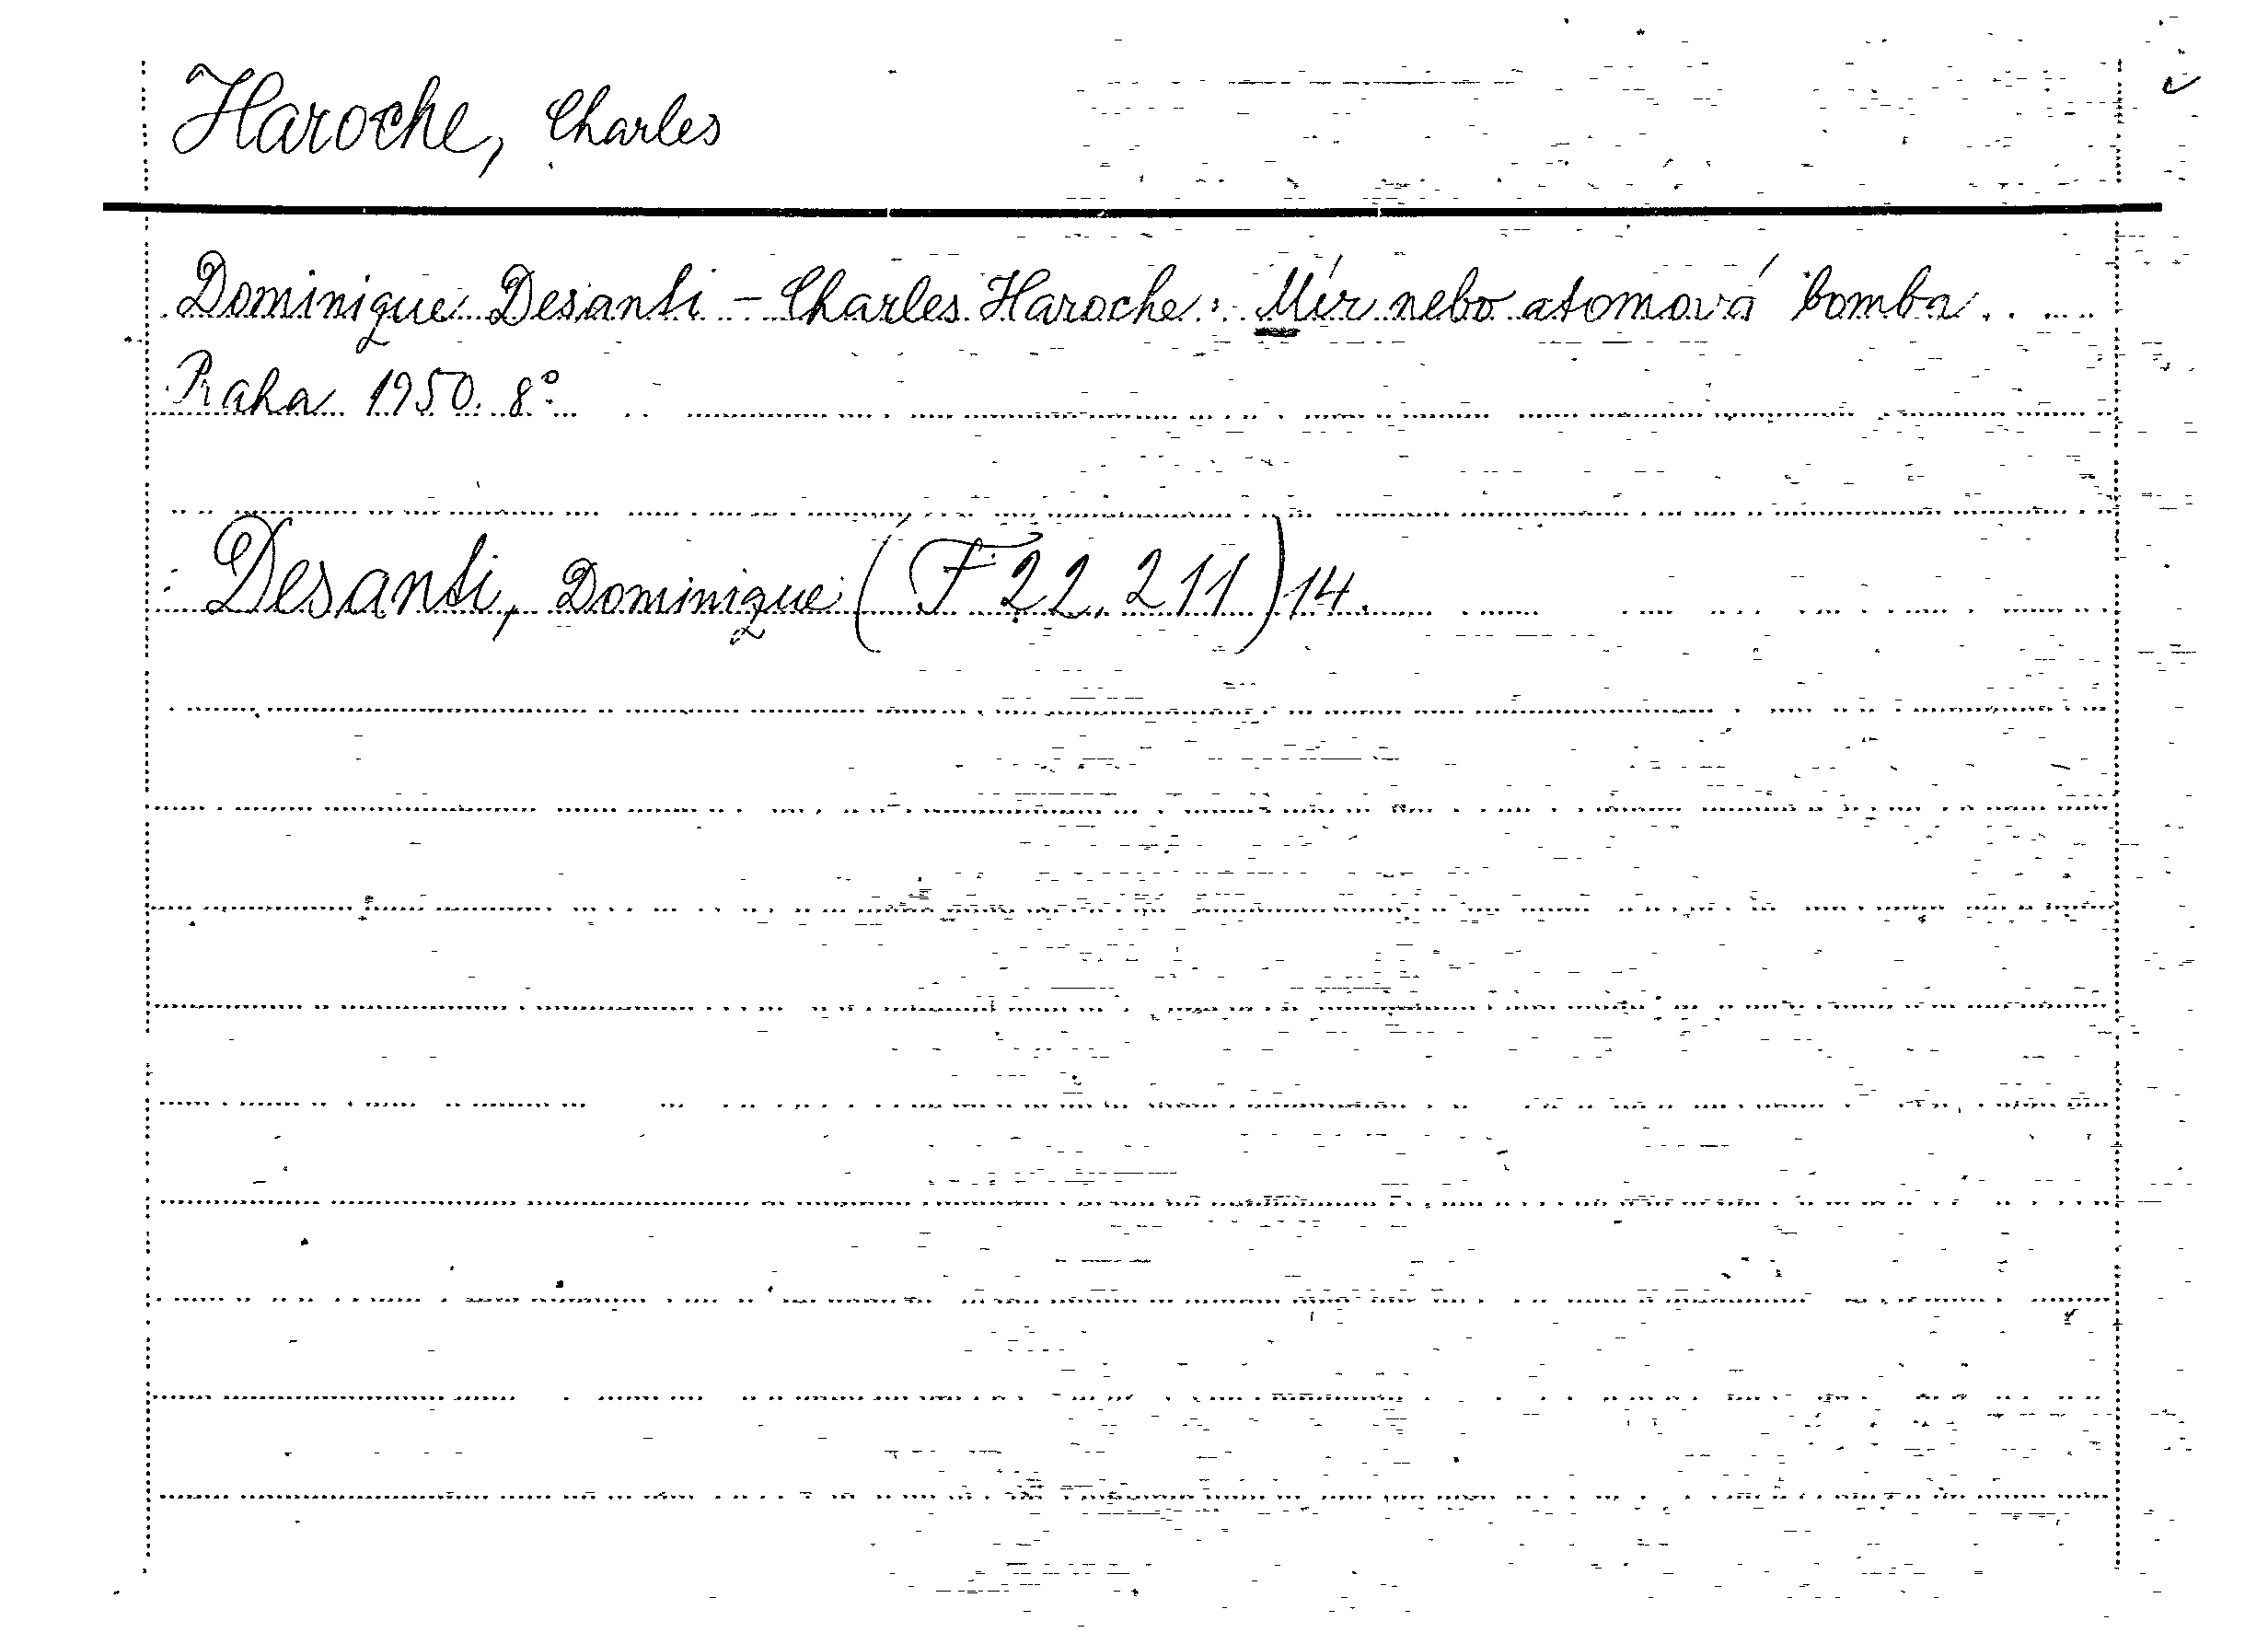 Haroche, Charles
Dominique Desanti - Charles Haroche: Mír nebo atomová bomba.
Praha 1950. 8°
Desanti, Dominique (F 22.211) 14.